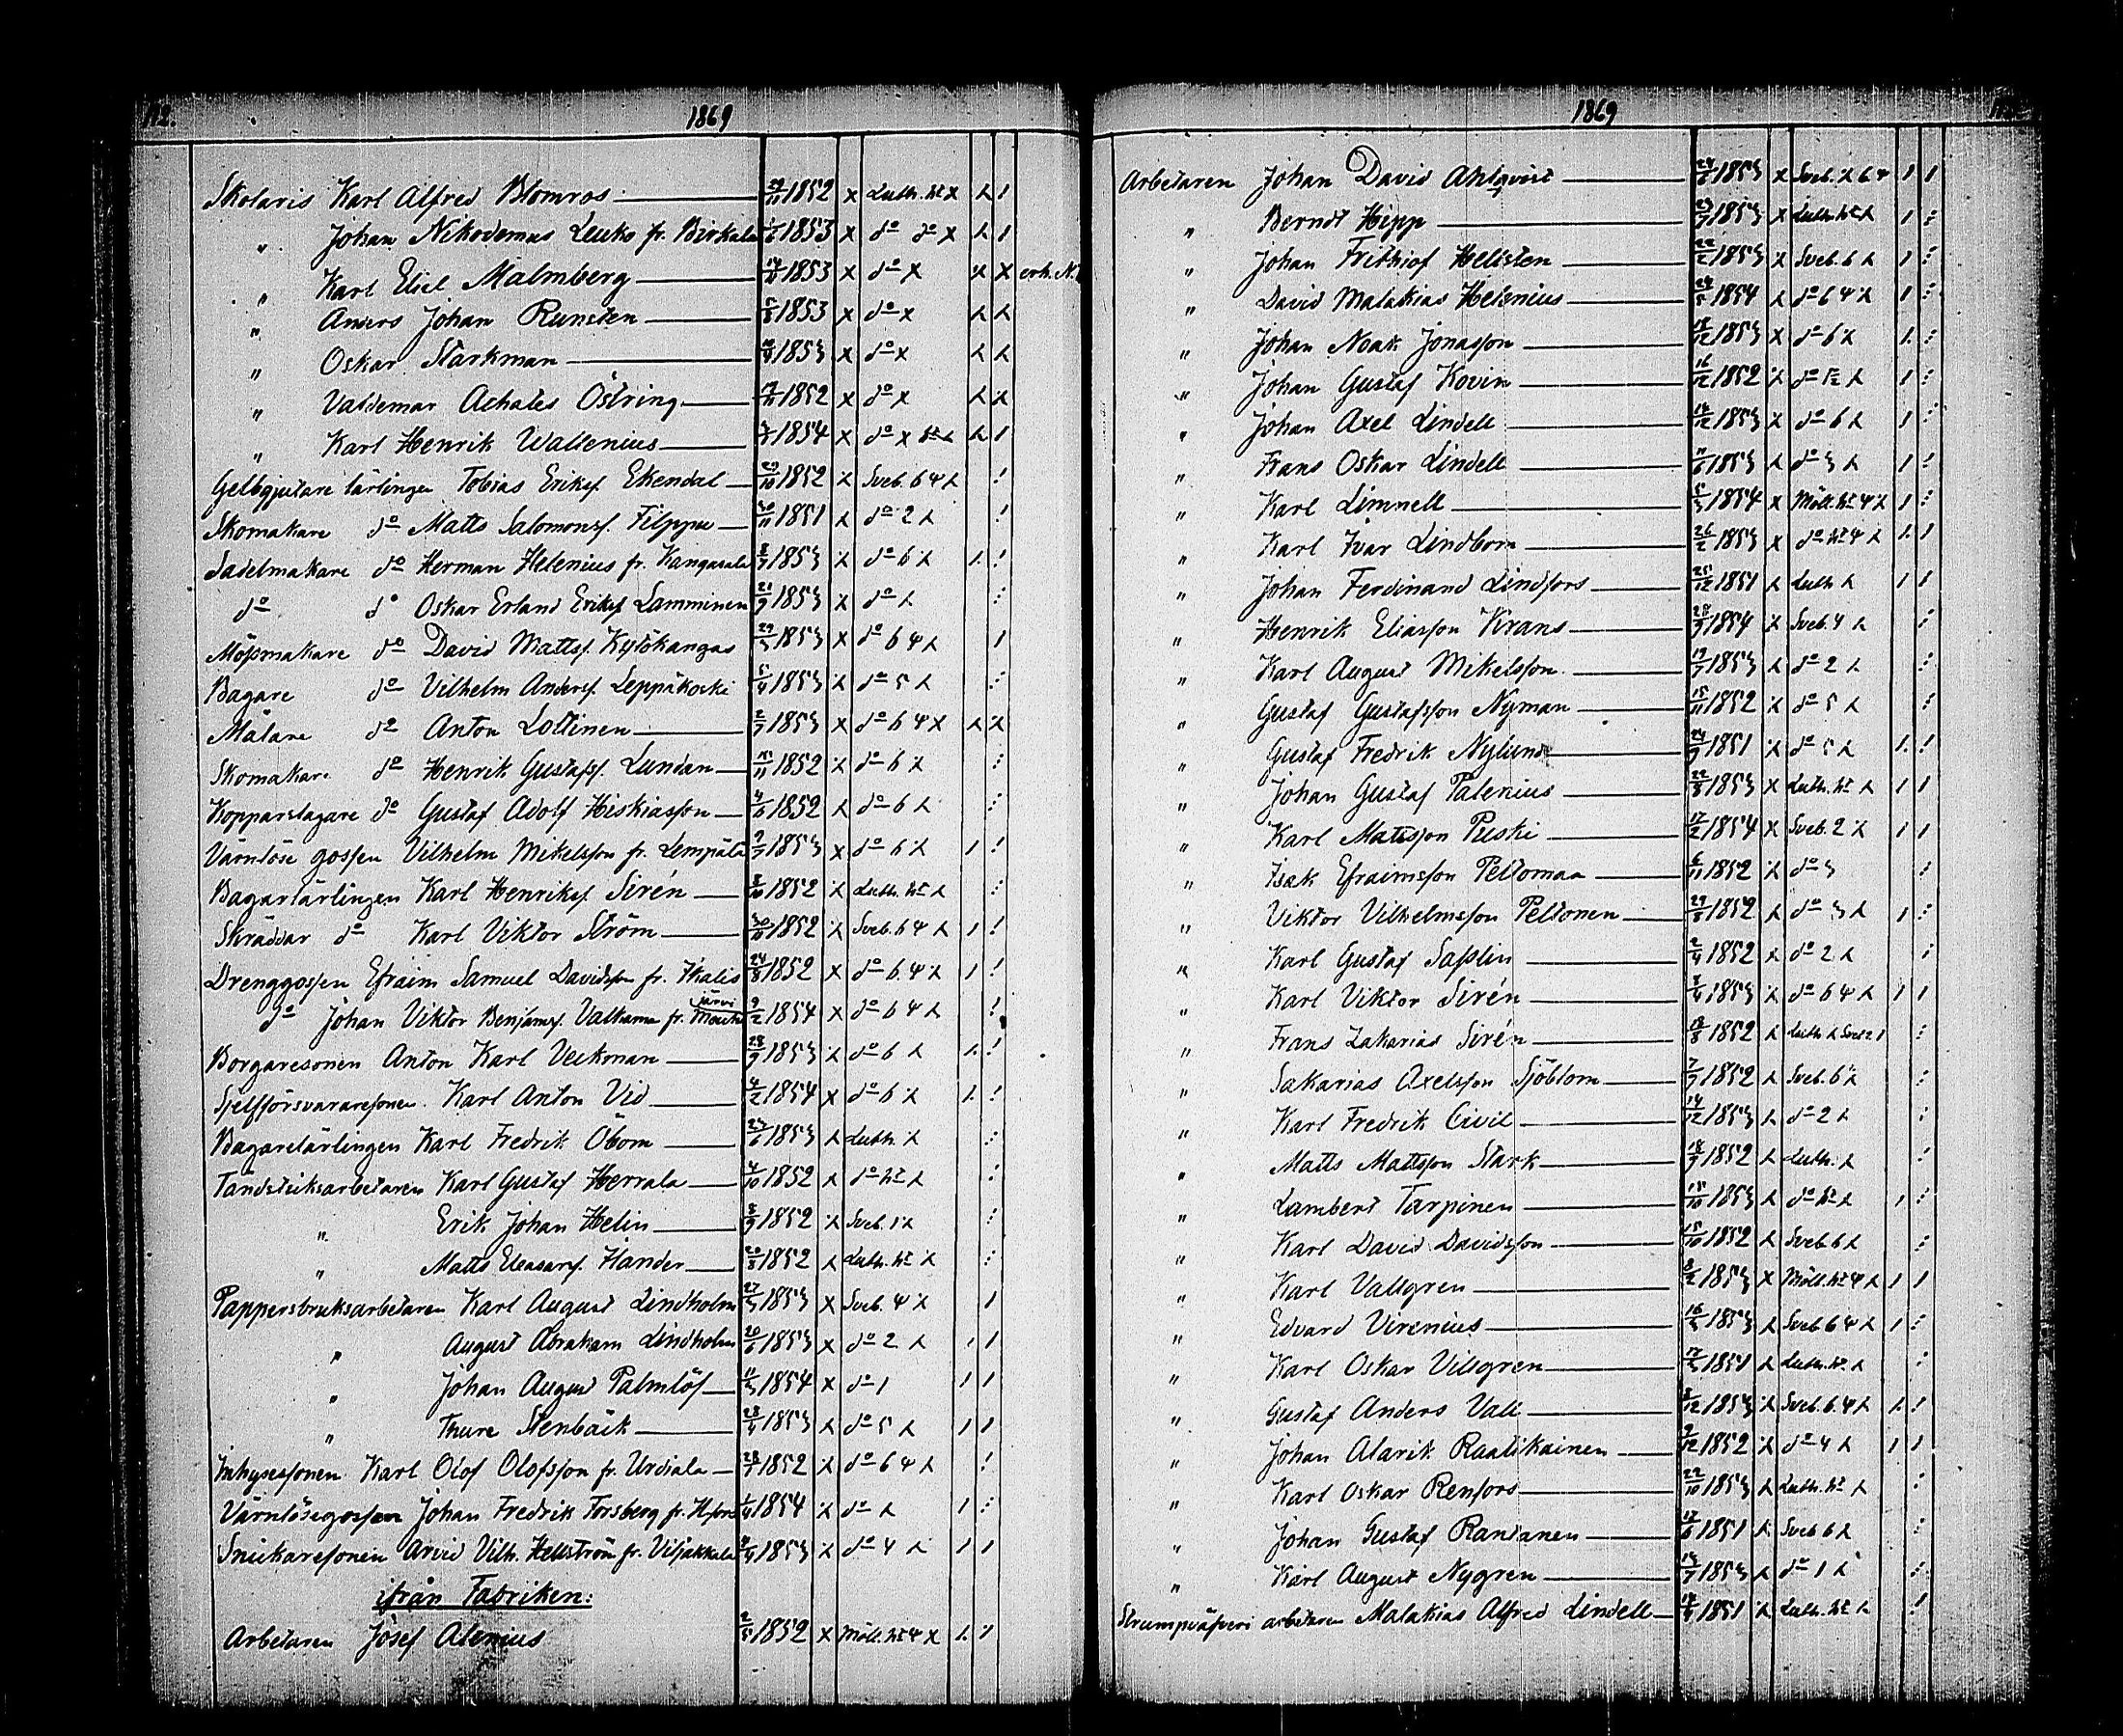 112. 1869
Skolaris Karl Alfred Blomros 1852 x Luth. ht x
" Johan Nikodemus Leuko fr. Birkala 1853 x do do x
" Karl Eliel Malmberg 1853 x do x
" Anders Johan Runsten 5/8 1853 x do x
" Oskar Starkman 1853 x do x
" Valdemar Achates Östring 1852 x do x
" Karl Henrik Wallenius 1854 x do x
Gelbgjutare lärlingen Tobias Eriksf. Ekendal 29/10 1852 Sveb. 6 4
Skomakare do Matts Salomonsf. Filppu 30/11 1851 do 2
Sadelmakare do Herman Helenius fr. Kangasala 8/7 1853 do 6
do do Oskar Erland Eriksf. Lamminen 21/9 1853 do
Mössmakare do David Mattsf. Kytökangas 29/3 1853 x do 6 4
Bagare do Vilhelm Andersf. Leppäkoski 5/4 1853 do 5
Målare do Anton Lottinen 2/7 1853 x do 6 4 x
Skomakare do Henrik Gustafsf. Lundan 1852 do 6
Kopparslagare do Gustaf Adolf Hiskiasson 4/6 1852 do 6
Värnlöse gossen Vilhelm Mikelsson fr. Lempälä 9/7 1853 x do 6
Bagarlärlingen Karl Henriksf. Sirén 8/10 1852 Luth. ht
Skräddar do Karl Viktor Ström 30/10 1852 Sveb. 6 4
Drenggossen Efraim Samuel Davidsson fr. Ikalis 24/8 1852 x do 6. 4
do Johan Viktor Benjamsf. Valkama fr. Mouhijärvi 9/2 1854 x do 6 4
Borgaresonen Anton Karl Veckman 28/9 1853 do 6
Sjelfförsvararesonen Karl Anton Vid 4/2 1854 x do 6
Bagarelärlingen Karl Fredrik Öbom 23/6 1853 Luth.
Tändsticksarbetaren Karl Gustaf Herrala 4/10 1852 do ht
" Erik Johan Helin 8/9 1852 Sveb. 1
" Matts Eleasarsf. Hander 20/8 1852 Luth. ht
Pappersbruksarbetaren Karl August Lindholm 27/3 1853 x Sveb. 4
" August Abraham Lindholm 20/6 1853 x do 2
" Johan August Palmlöf 11/3 1854 x do 1
" Thure Stenbäck 28/4 1853 do 5
Inhysessonen Karl Olof Olofsson fr. Urdiala 28/7 1852 do 6 4
Värnlösegossen Johan Fredrik Forsberg fr. H:fors 1854 do
Snickaresonen Arvid Vilh. Hellström fr. Viljakkala 1853 do 4
ifrån Fabriken:
Arbetaren Josef Alenius 2/5 1852 x Möll. ht 4 x
1869
Arbetaren Johan David Ahlqvist 1853 x Sveb. 6 4
" Berndt Hipp 23/7 1853 x Luth. ht
" Johan Frithiof Hellsten 22/2 1853 x Sveb. 6
" David Malakias Helenius 24/5 1854 do 6 4
" Johan Noak Jonasson 18/12 1853 x do 6
" Johan Gustaf Kovin 16/12 1852 do
" Johan Axel Lindell 14/12 1853 x do 6
" Frans Oskar Lindell 11/6 1853 do 3
" Karl Limnell 5/3 1854 x Möll. ht 4
" Karl Ivar Lindbom 26/2 1853 x do ht 4
" Johan Ferdinand Lindfors 25/12 1851 Luth
" Henrik Eliasson Krans 1854 Sveb. 4
" Karl August Mikelsson 19/7 1853 do 2
" Gustaf Gustafsson Nyman 15/11 1852 do 5
" Gustaf Fredrik Nylund 24/9 1851 do 5
" Johan Gustaf Palenius 22/8 1853 x Luth. ht
" Karl Mattsson Puski 17/2 1854 x Sveb. 2
" Isak Efraimsson Peltomaa 6/11 1852 do 3
" Viktor Vilhelmsson Peltonen 29/8 1852 do 3
" Karl Gustaf Sasslin 2/4 1852 do 2
" Karl Viktor Sirén 1853 do 6 4
" Frans Zakarias Sirén 18/8 1852 Luth
" Sakarias Axelsson Sjöblom 7/7 1852 Sveb. 6
" Karl Fredrik Civil 14/12 1853 do 2
" Matts Mattsson Stark 18/9 1852 Luth.
" Lambert Tarpinen 18/10 1853 do ht
" Karl David Davidsson 15/10 1852 Sveb 6
" Karl Vallgren 8/2 1853 x Möll. ht 4
" Edvard Virenius 16/3 1853 Sveb 6 4
" Karl Oskar Villgren 1851 Luth. ht
" Gustaf Anders Vall 1853 Sveb. 6. 4
" Johan Alarik Raatikainen 9/12 1852 do 4
" Karl Oskar Renfors 22/10 1853 Luth. ht
" Johan Gustaf Rantanen 17/6 1851 Sveb 6
" Karl August Nygren 14/7 1853 do 1
Strumpväfveri arbetaren Malakias Alfred Lindell 1851 Luth. ht